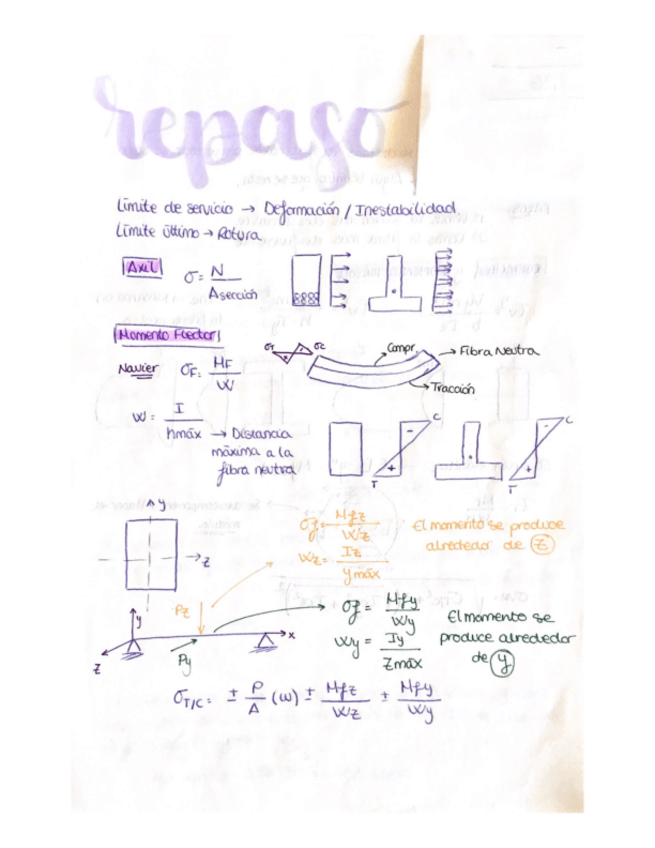 repaso
Límite de servicio → Deformación / Inestabilidad
Límite último → Rotura
Axil
σ = N / A sección
Momento Flector
σT σC
Compr
→ Fibra Neutra
→ Tracción
Navier σF = MF / W
W = I / hmáx → Distancia
máxima a la
fibra neutra
- C - C
+ +
T T
y
z
σf = Mfz / Wz
Wz = Iz / ymáx
El momento se produce
alrededor de z
Pz
y
x
z
Py
σf = Mfy / Wy
Wy = Iy / Zmáx
El momento se
produce alrededor
de y
σT/C = ± P / A (ω) ± Mfz / Wz ± Mfy / Wy